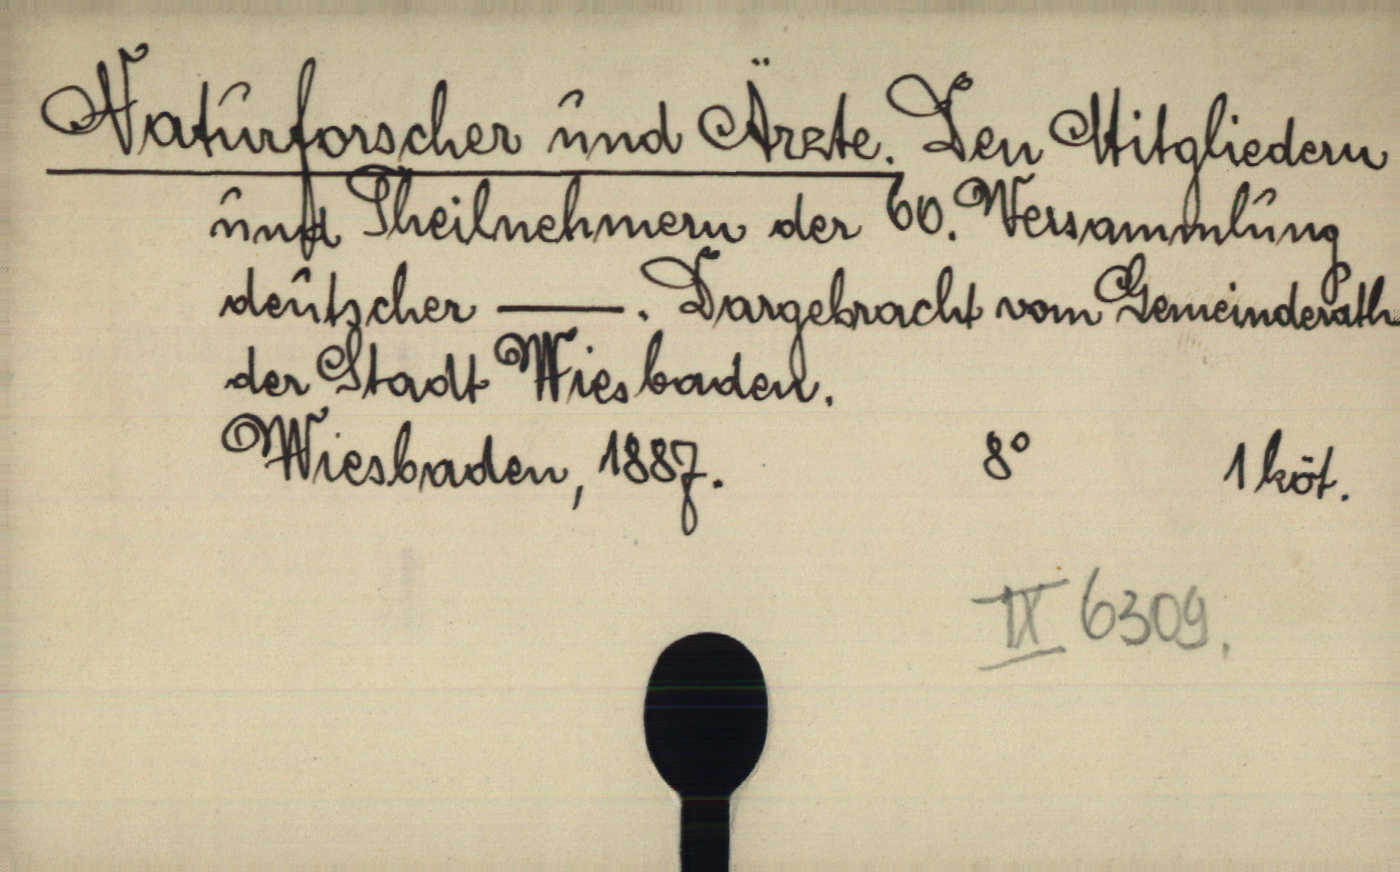 Naturforscher und Ärzte. Den Mitgliedern
und Theilnehmern der 60. Versammlung
deutscher —. Dargebracht vom Gemeinderath
der Stadt Wiesbaden.
Wiesbaden, 1887. 8° 1 köt.
IX 6309.